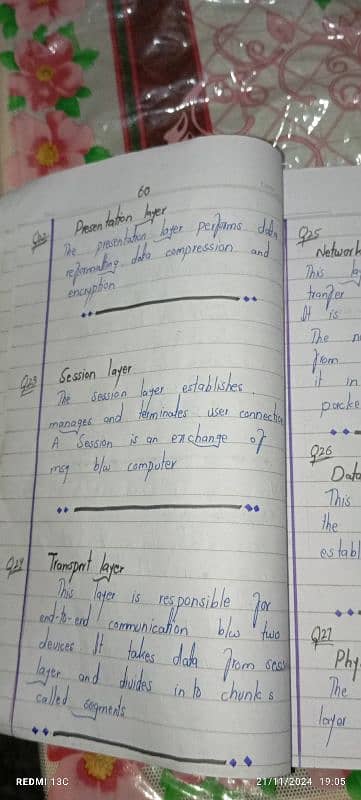 60
Q22 Presentation layer
The presentation layer performs data
reformatting data compression and
encryption
Q23 Session layer
The session layer establishes,
manages and terminates user connection
A Session is an exchange of
msg b/w computer
Q24 Transport layer
This layer is responsible for
end-to-end communication b/w two
devices It takes data from sess
layer and divides in to chunks
called segments
Q25
Network
This lay
tranfer
It is
The n
from
it in
packe
Q26
Data
This
the
establ
Q27
Phy
The
layor
REDMI 13C
21/11/2024 19:05